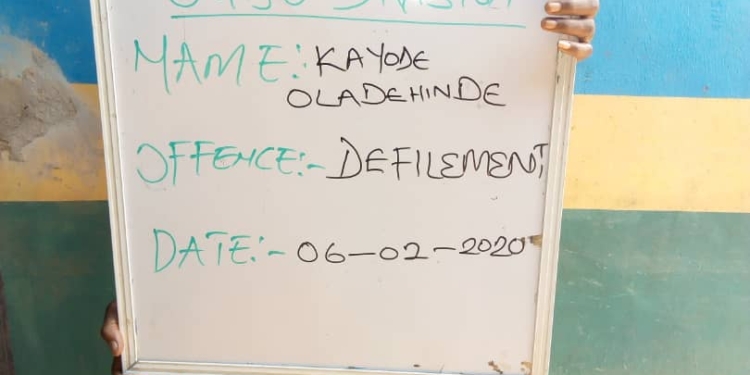 DIVISION
NAME:- KAYODE
OLADEHINDE
OFFENCE:- DEFILEMENT
DATE:- 06-02-2020